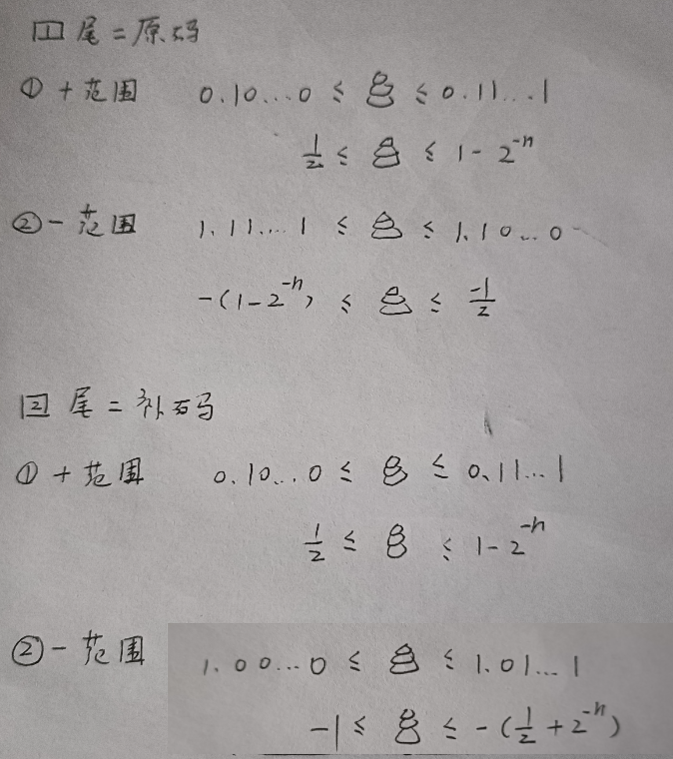 1 尾=原码
① + 范围 0.10...0 ≤ 8 ≤ 0.11...1
1/2 ≤ 8 ≤ 1-2^-n
② - 范围 1.11...1 ≤ 8 ≤ 1.10...0
-(1-2^-n) ≤ 8 ≤ -1/2
2 尾=补码
① + 范围 0.10...0 ≤ 8 ≤ 0.11...1
1/2 ≤ 8 ≤ 1-2^-n
② - 范围 1.00...0 ≤ 8 ≤ 1.01...1
-1 ≤ 8 ≤ -(1/2+2^-n)